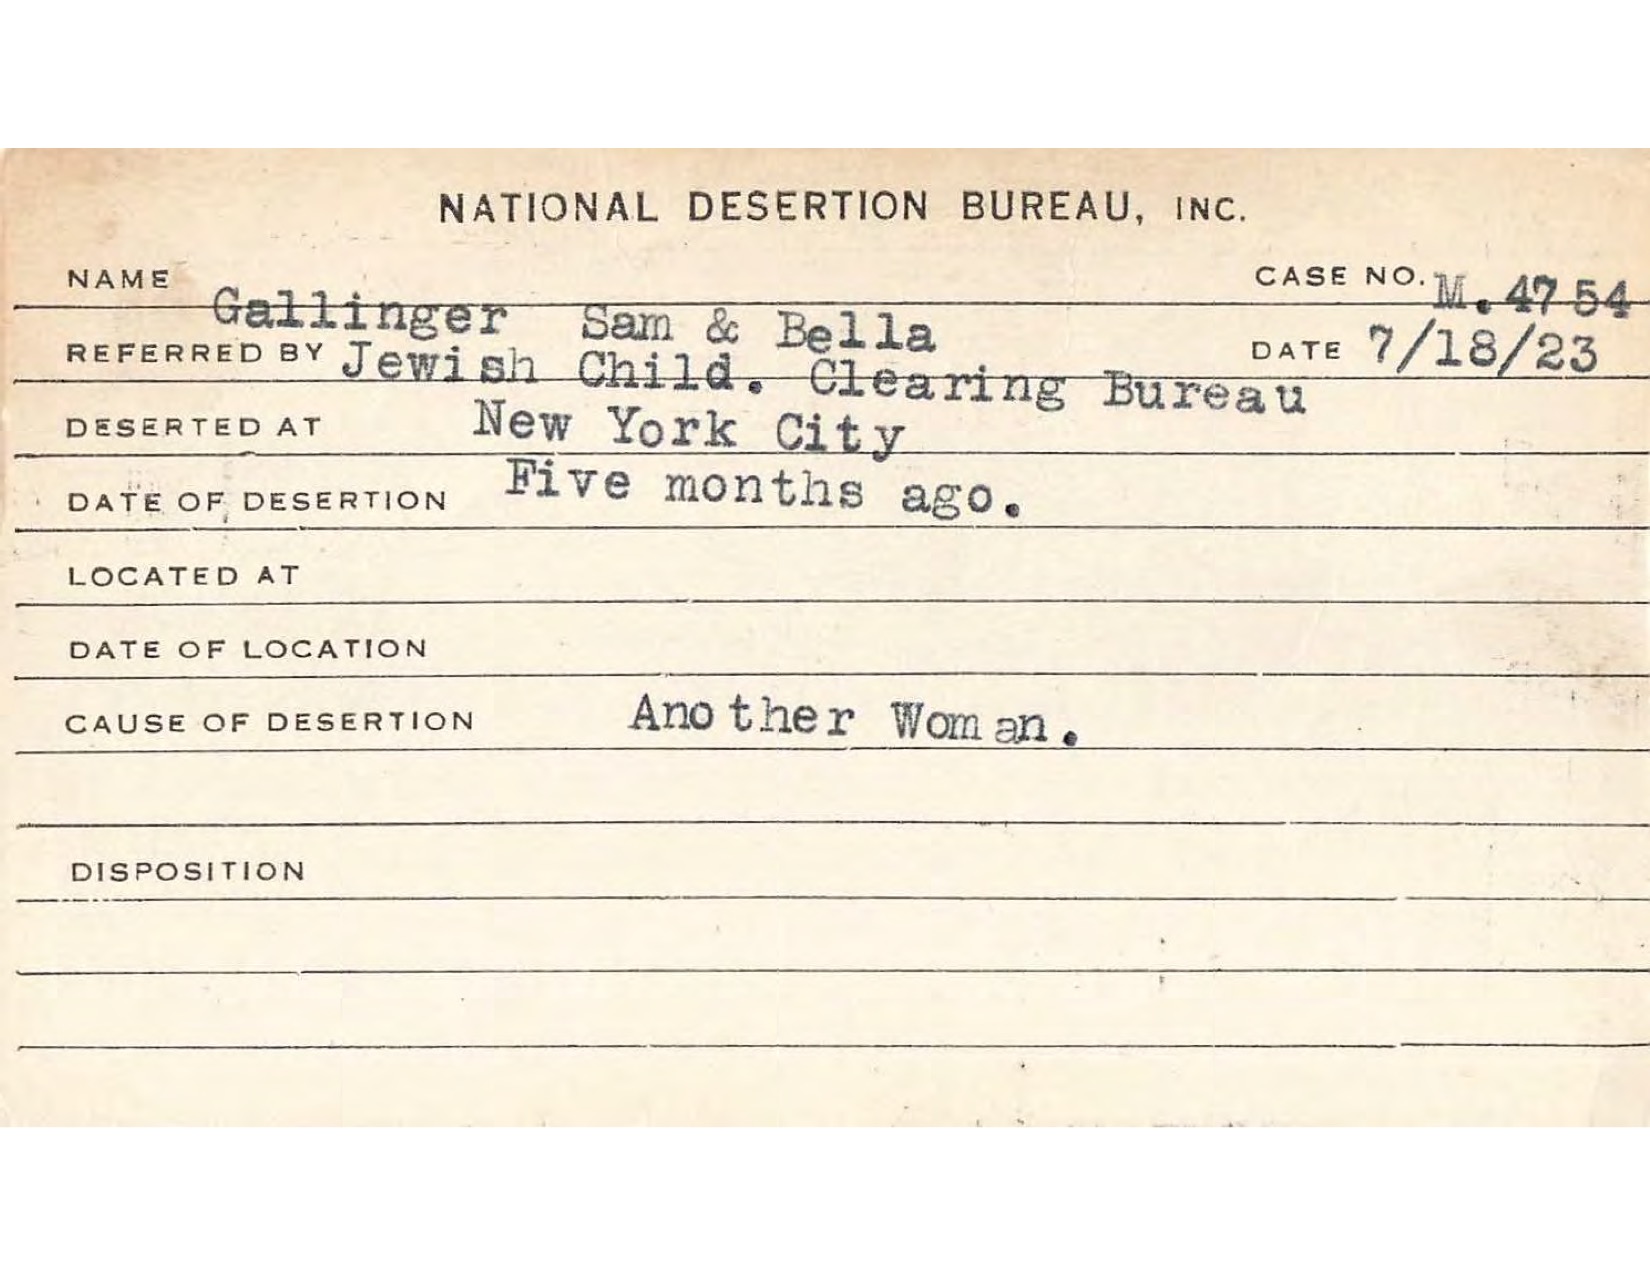 NATIONAL DESERTION BUREAU, INC.
NAME Gallinger Sam & Bella CASE NO. M. 4754
REFERRED BY Jewish Child. Clearing Bureau DATE 7/18/23
DESERTED AT New York City
DATE OF DESERTION Five months ago.
LOCATED AT
DATE OF LOCATION
CAUSE OF DESERTION Another Woman.
DISPOSITION